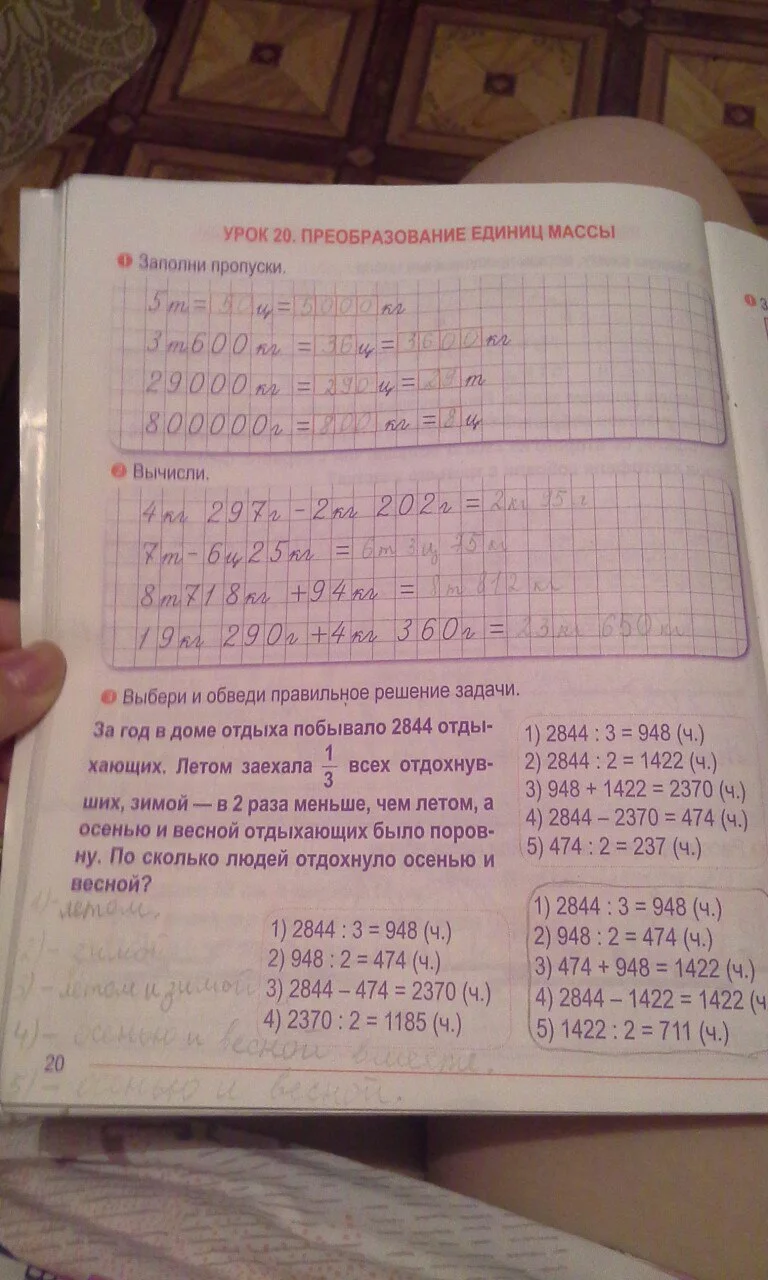 УРОК 20. ПРЕОБРАЗОВАНИЕ ЕДИНИЦ МАССЫ
1 Заполни пропуски.
5 т = 50 ц = 5000 кг
3 т 600 кг = 36 ц = 3600 кг
29000 кг = 290 ц = 29 т
800000 г = 800 кг = 8 ц
2 Вычисли.
4 кг 297 г - 2 кг 202 г = 2 кг 95 г
7 т - 6 ц 25 кг = 6 т 3 ц 75 кг
8 т 718 кг + 94 кг = 8 т 812 кг
19 кг 290 г + 4 кг 360 г = 23 кг 650 кг
3 Выбери и обведи правильное решение задачи.
За год в доме отдыха побывало 2844 отды-
хающих. Летом заехала 1/3 всех отдохнув-
ших, зимой — в 2 раза меньше, чем летом, а
осенью и весной отдыхающих было поров-
ну. По сколько людей отдохнуло осенью и
весной?
1) 2844 : 3 = 948 (ч.)
2) 2844 : 2 = 1422 (ч.)
3) 948 + 1422 = 2370 (ч.)
4) 2844 – 2370 = 474 (ч.)
5) 474 : 2 = 237 (ч.)
1)- летом.
2)- зимой
3)- летом и зимой
4)- осенью и весной вместе.
5)- осенью и весной.
1) 2844 : 3 = 948 (ч.)
2) 948 : 2 = 474 (ч.)
3) 2844 – 474 = 2370 (ч.)
4) 2370 : 2 = 1185 (ч.)
1) 2844 : 3 = 948 (ч.)
2) 948 : 2 = 474 (ч.)
3) 474 + 948 = 1422 (ч.)
4) 2844 – 1422 = 1422 (ч
5) 1422 : 2 = 711 (ч.)
20
1 З